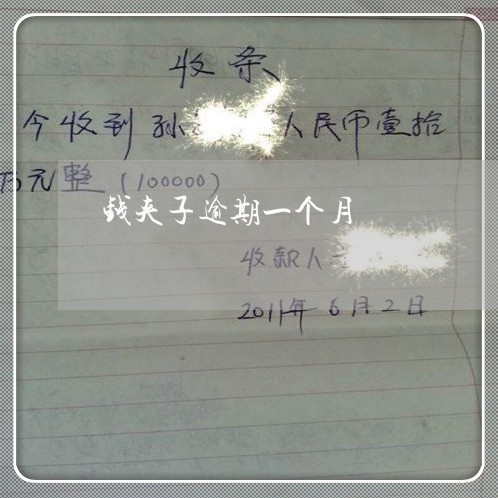 收条
今收到孙 人民币壹拾
万元整(100000)
钱夹子逾期一个月
收款人
2011年6月2日